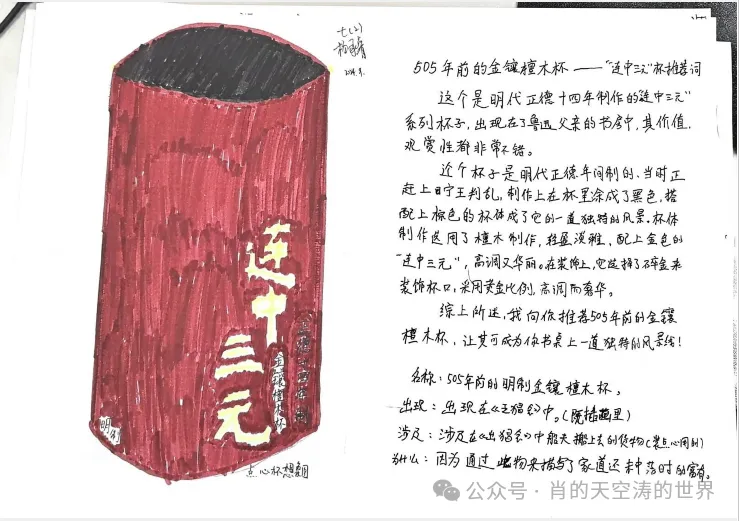 七(2)
505年前的金镶檀木杯——“连中三元”杯推荐词
这个是明代正德十四年制作的“连中三元”
系列杯子,出现在了鲁迅父亲的书房中,其价值,
观赏性都非常不错。
这个杯子是明代正德年间制的,当时正
赶上宁王判乱,制作上在杯里涂成了黑色,搭
配上棕色的杯体成了它的一道独特的风景。杯体
制作选用了檀木制作,轻盈淡雅,配上金色的
“连中三元”,高调又华丽。在装饰上,它选择了碎金来
装饰杯口,采用黄金比例,高调而奢华。
综上所述,我向你推荐505年前的金镶
檀木杯,让其可成为你书桌上一道独特的风景线!
名称:505年前的明制金镶檀木杯。
出现:出现在《五猖会》中。(插画里)
涉及:涉及在《五猖会》中船夫搬上去的货物(装点心用的)
为什么:因为通过此物来描写了家道还未中落时的富有。
连中三元
正德十四年制
金镶檀木杯
明制
点心杯想象图
公众号·肖的天空涛的世界